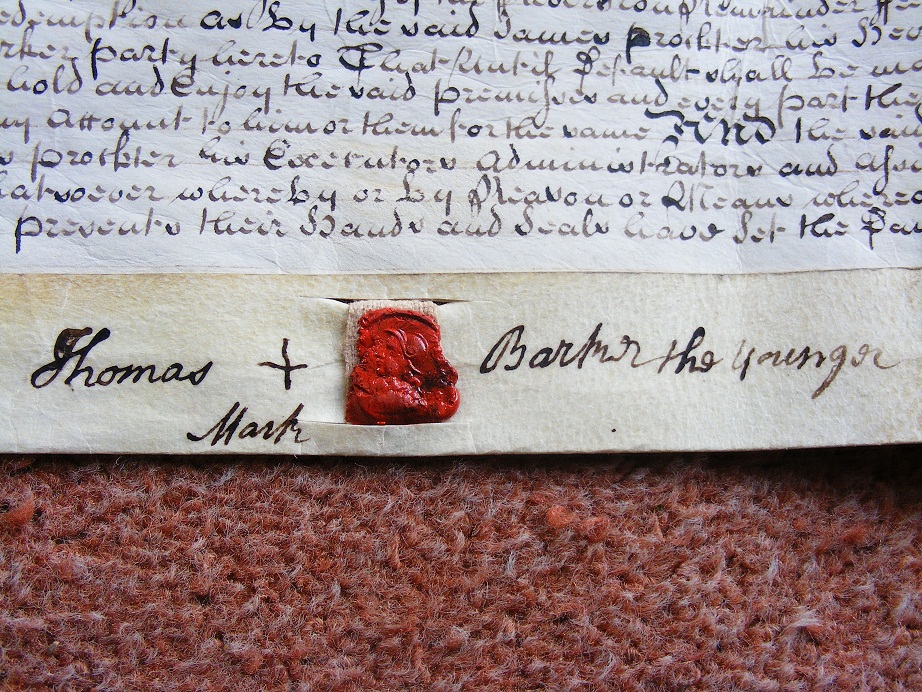 redemption as By the said James Prockter his Heir
arker party hereto That Until Default shall be ma
hold and Enjoy the said premisses and every part the
ny Account to him or them for the same And the said
s Prockter his Executors Administrators and Assi
hatsoever whereby or By Reason or Means where
presents their Hands and Seals have Set the Day
Thomas + Barker the younger
Mark